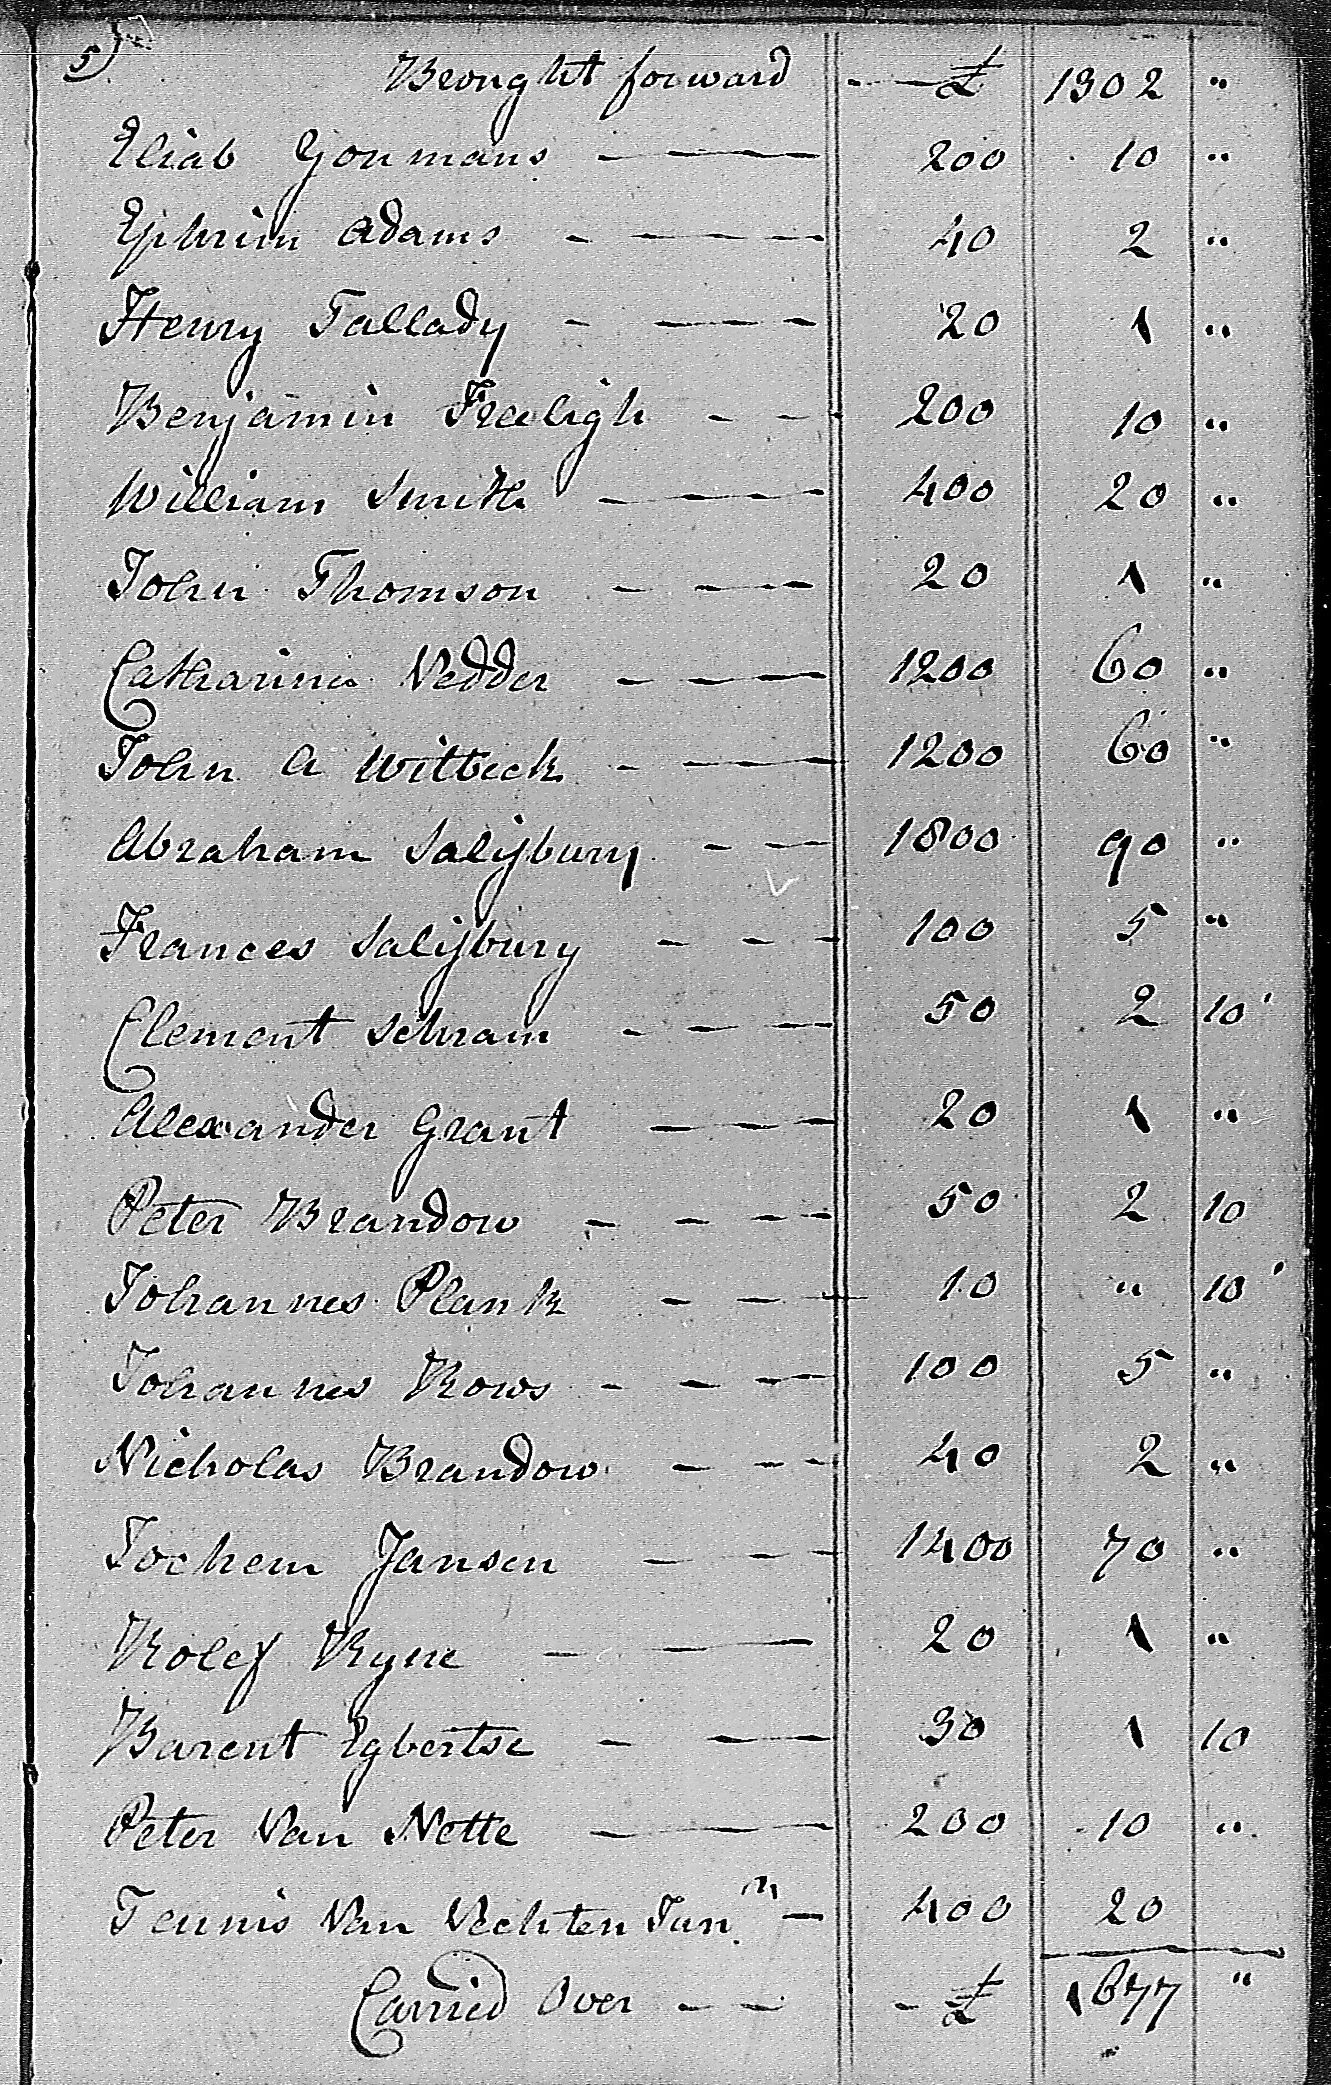 5)
Brought forward £ 1302 "
Eliab Youmans 200 10 "
Ephrim Adams 40 2 "
Henry Tallady 20 1 "
Benjamin Freeligh 200 10 "
William Smith 400 20 "
John Thomson 20 1 "
Catharina Vedder 1200 60 "
John A Witbeck 1200 60 "
Abraham Salisbury 1800 90 "
Frances Salisbury 100 5 "
Clement Schram 50 2 10
Alexander Grant 20 1 "
Peter Brandow 50 2 10
Johannes Plank 10 " 10
Johannes Rows 100 5 "
Nicholas Brandow 40 2 "
Jochem Jansen 1400 70 "
Rolef Ryne 20 1 "
Barent Egbertse 30 1 10
Peter Van Nette 200 10 "
Teunis Van Vechten Junr 400 20
Carried Over £ 1677 "